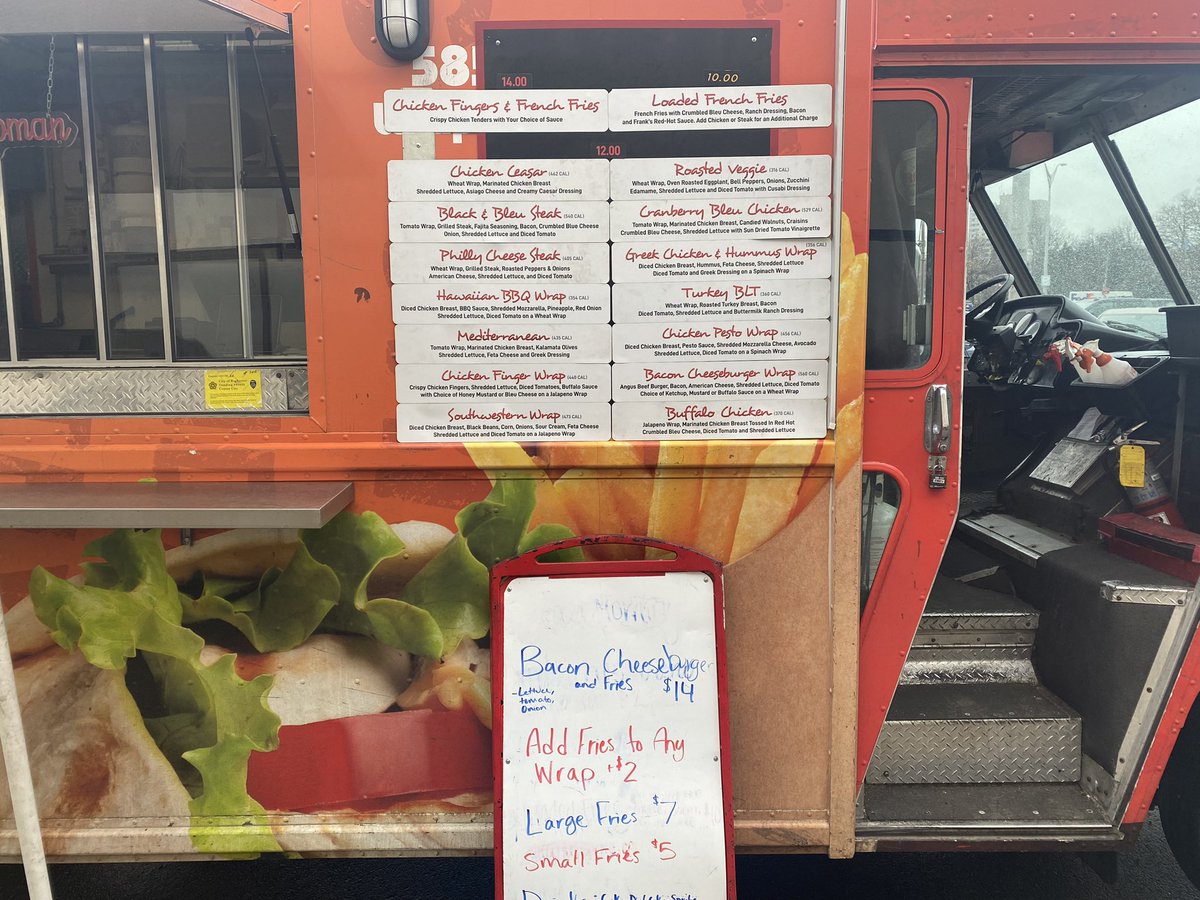 oman
58
14.00
10.00
Chicken Fingers & French Fries
Crispy Chicken Tenders with Your Choice of Sauce
Loaded French Fries
French Fries with Crumbled Bleu Cheese, Ranch Dressing, Bacon
and Frank's Red-Hot Sauce. Add Chicken or Steak for an Additional Charge
12.00
Chicken Ceasar (462 CAL)
Wheat Wrap, Marinated Chicken Breast
Shredded Lettuce, Asiago Cheese and Creamy Caesar Dressing
Black & Bleu Steak (540 CAL)
Tomato Wrap, Grilled Steak, Fajita Seasoning, Bacon, Crumbled Blue Cheese
Onion, Shredded Lettuce and Diced Tomato
Philly Cheese Steak (405 CAL)
Wheat Wrap, Grilled Steak, Roasted Peppers & Onions
American Cheese, Shredded Lettuce, and Diced Tomato
Hawaiian BBQ Wrap (364 CAL)
Diced Chicken Breast, BBQ Sauce, Shredded Mozzarella, Pineapple, Red Onion
Shredded Lettuce, Diced Tomato on a Wheat Wrap
Mediterranean (435 CAL)
Tomato Wrap, Marinated Chicken Breast, Kalamata Olives
Shredded Lettuce, Feta Cheese and Greek Dressing
Chicken Finger Wrap (440 CAL)
Crispy Chicken Fingers, Shredded Lettuce, Diced Tomatoes, Buffalo Sauce
with Choice of Honey Mustard or Bleu Cheese on a Jalapeno Wrap
Southwestern Wrap (473 CAL)
Diced Chicken Breast, Black Beans, Corn, Onions, Sour Cream, Feta Cheese
Shredded Lettuce and Diced Tomato on a Jalapeno Wrap
Roasted Veggie (316 CAL)
Wheat Wrap, Oven Roasted Eggplant, Bell Peppers, Onions, Zucchini
Edamame, Shredded Lettuce and Diced Tomato with Cusabi Dressing
Cranberry Bleu Chicken (529 CAL)
Tomato Wrap, Marinated Chicken Breast, Candied Walnuts, Craisins
Crumbled Bleu Cheese, Shredded Lettuce with Sun Dried Tomato Vinaigrette
Greek Chicken & Hummus Wrap (356 CAL)
Diced Chicken Breast, Hummus, Feta Cheese, Shredded Lettuce
Diced Tomato and Greek Dressing on a Spinach Wrap
Turkey BLT (360 CAL)
Wheat Wrap, Roasted Turkey Breast, Bacon
Diced Tomato, Shredded Lettuce and Buttermilk Ranch Dressing
Chicken Pesto Wrap (456 CAL)
Diced Chicken Breast, Pesto Sauce, Shredded Mozzarella Cheese, Avocado
Shredded Lettuce, Diced Tomato on a Spinach Wrap
Bacon Cheeseburger Wrap (560 CAL)
Angus Beef Burger, Bacon, American Cheese, Shredded Lettuce, Diced Tomato
Choice of Ketchup, Mustard or Buffalo Sauce on a Wheat Wrap
Buffalo Chicken (370 CAL)
Jalapeno Wrap, Marinated Chicken Breast Tossed In Red Hot
Crumbled Bleu Cheese, Diced Tomato and Shredded Lettuce
Bacon Cheeseburger
and Fries $14
-Lettuce,
tomato,
Onion
Add Fries to Any
Wrap +$2
Large Fries $7
Small Fries $5